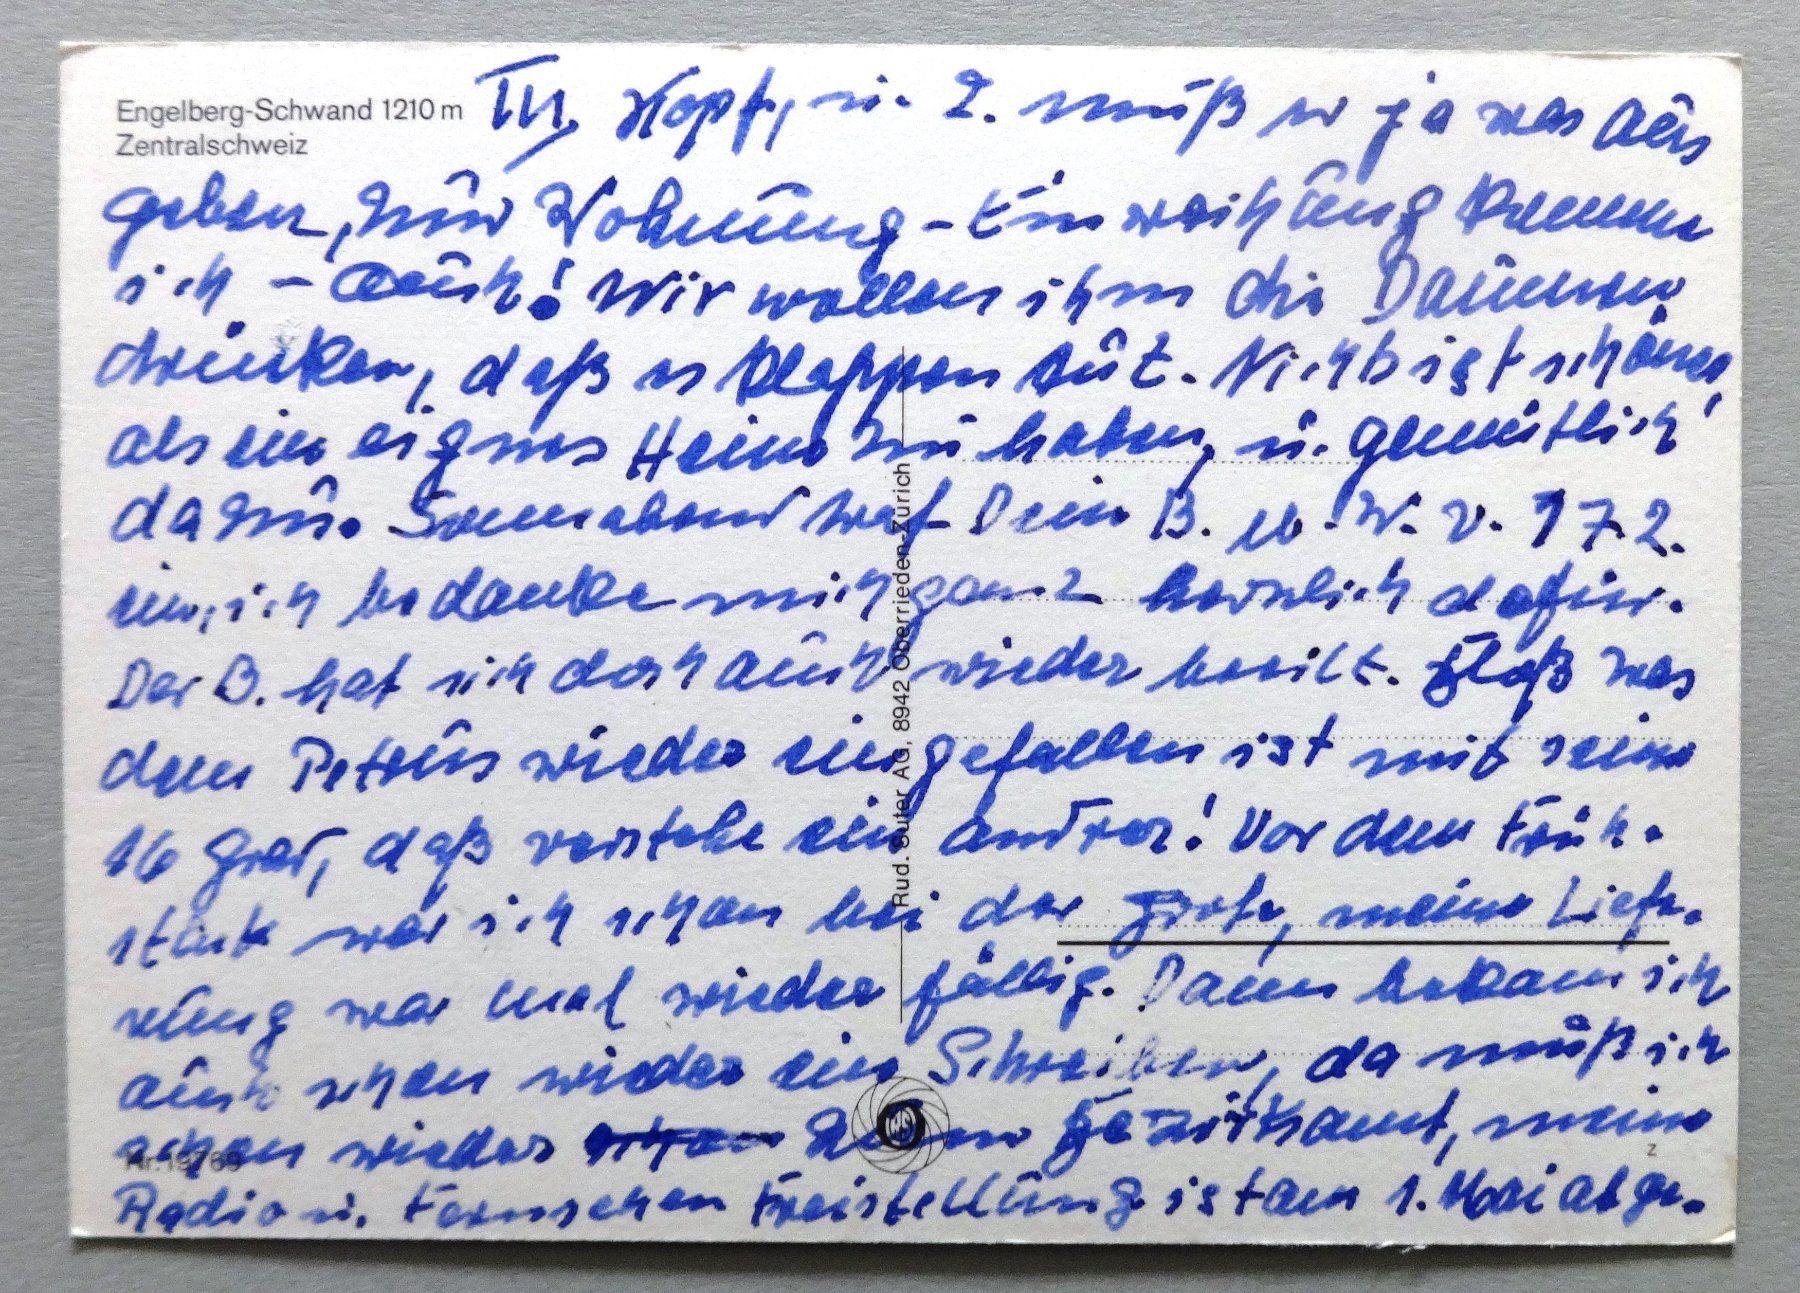 Engelberg-Schwand 1210 m
Zentralschweiz
III, Kopf, u. 2. muß er ja was aus
geben, zur Wohnung-Einweihung komme
ich - auch! Wir wollen ihm die Daumen
drücken, daß es klappen tut. Nichts ist schöner,
als ein eignes Heim zu haben, u. gemütlich
dazu. Sonnabend traf Dein B. u. W. v. 17.2.
ein, ich bedanke mich ganz herzlich dafür.
Der B. hat sich doch auch wieder beeilt. Bloß was
dem Petrus wieder eingefallen ist mit seine
16 Grad, daß verstehe ein andrer! Vor dem Früh-
stück war ich schon bei der Post, meine Liefe-
rung war mal wieder fällig. Dann bekam ich
auch schon wieder ein Schreiben, da muß ich
schon wieder zum Bezirksamt, meine
Radio u. Fernsehen Freistellung ist am 1. Mai abge-
Rud. Suter AG, 8942 Oberrieden-Zürich
Nr. 19769
Z